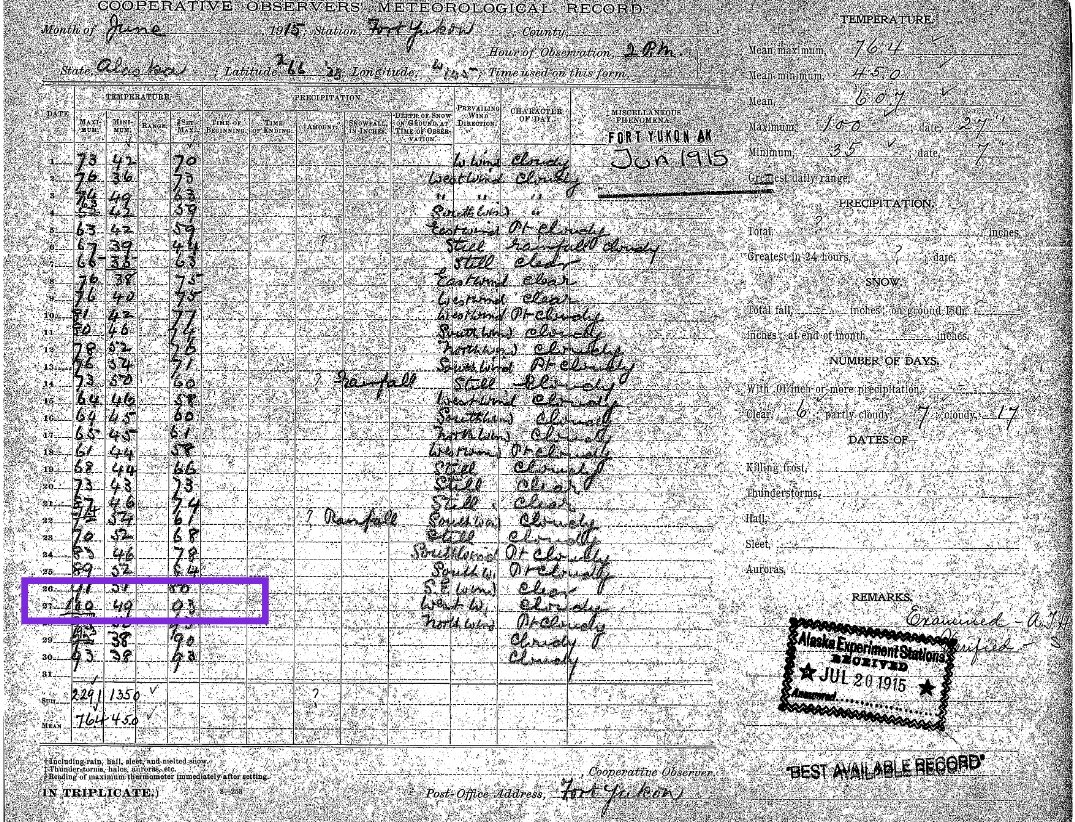 COOPERATIVE OBSERVERS' METEOROLOGICAL RECORD.
Month of June 1915; Station, Fort Yukon County,
Hour of Observation, 2 P.M.
State, Alaska; Latitude, 66 Longitude, Time used on this form,
TEMPERATURE. PRECIPITATION.
DATE MAXIMUM. MINIMUM. RANGE. SET MAX. TIME OF BEGINNING. TIME OF ENDING. AMOUNT. SNOWFALL IN INCHES. DEPTH OF SNOW ON GROUND AT TIME OF OBSERVATION. PREVAILING WIND DIRECTION. CHARACTER OF DAY. MISCELLANEOUS PHENOMENA.
FORT YUKON AK
Jun 1915
1 73 42 70 W Wind Cloudy
2 76 36 73 West wind Cloudy
3 49 63 " " "
4 42 59 South Wind "
5 63 42 59 East wind Pt Cloudy
6 67 39 44 ? Still Rainfall Cloudy
7 66 35 63 Still Clear
8 76 38 75 East wind Clear
9 76 40 75 West wind Clear
10 81 42 77 West wind Pt Cloudy
11 80 46 South Wind Cloudy
12 78 52 76 North wind Cloudy
13 76 54 71 South wind Pt Cloudy
14 73 50 60 ? Rainfall Still Cloudy
15 64 46 58 West wind Cloudy
16 64 45 60 South wind Cloudy
17 65 45 61 North wind Cloudy
18 61 44 58 West wind Pt Cloudy
19 68 44 66 Still Cloudy
20 73 43 73 Still Clear
21 46 74 Still Clear
22 54 61 ? Rainfall South wind Cloudy
23 70 52 68 Still Cloudy
24 83 46 78 South wind Pt Cloudy
25 89 52 64 South W. Pt Cloudy
26 91 51 80 S wind Clear
27 100 49 93 West W. Cloudy
28 North wind Pt Cloudy
29 38 90 Cloudy
30 93 38 93 Cloudy
31
SUM 2291 1350 ?
MEAN 764 450
TEMPERATURE.
Mean maximum, 76.4
Mean minimum, 45.0
Mean, 60.7
Maximum, 100; date, 27
Minimum, 35; date, 7
Greatest daily range,
PRECIPITATION.
Total, ? inches.
Greatest in 24 hours, ?; date,
SNOW.
Total fall, inches; on ground 15th,
inches; at end of month, inches.
NUMBER OF DAYS.
With .01 inch or more precipitation,
Clear, 6; partly cloudy, 7; cloudy, 17
DATES OF—
Killing frost,
Thunderstorms,
Hail,
Sleet,
Auroras,
REMARKS.
Examined
Verified
Alaska Experiment Stations
RECEIVED
JUL 20 1915
Answered
*Including rain, hail, sleet, and melted snow.
†Thunderstorms, halos, auroras, etc.
‡Reading of maximum thermometer immediately after setting.
IN TRIPLICATE.)
Cooperative Observer.
Post-Office Address, Fort Yukon
"BEST AVAILABLE RECORD"